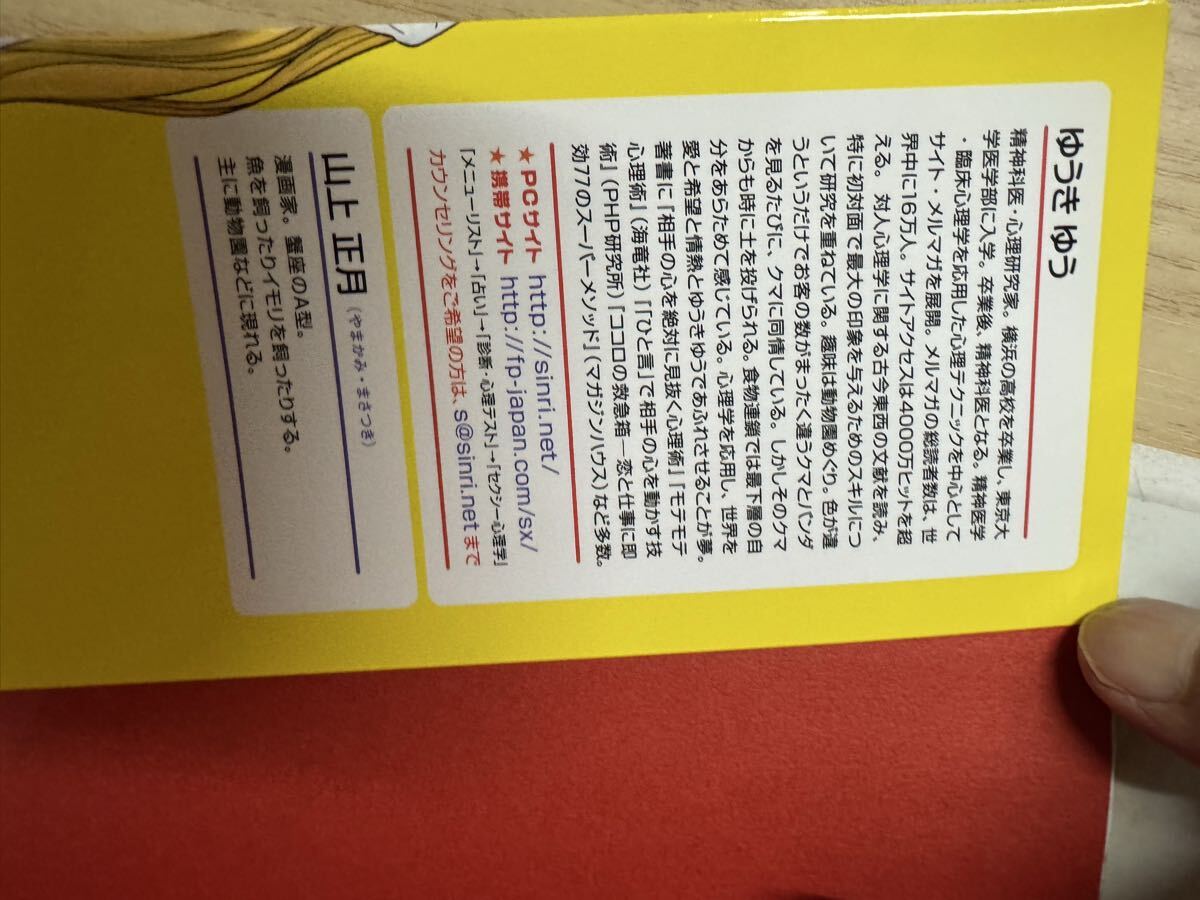 ゆうき ゆう
精神科医・心理研究家。横浜の高校を卒業し、東京大
学医学部に入学。卒業後、精神科医となる。精神医学
・臨床心理学を応用した心理テクニックを中心として
サイト・メルマガを展開。メルマガの総読者数は、世
界中に16万人。サイトアクセスは4000万ヒットを超
える。 対人心理学に関する古今東西の文献を読み、
特に初対面で最大の印象を与えるためのスキルにつ
いて研究を重ねている。趣味は動物園めぐり。色が違
うというだけでお客の数がまったく違うクマとパンダ
を見るたびに、クマに同情している。しかしそのクマ
からも時に土を投げられる。食物連鎖では最下層の自
分をあらためて感じている。心理学を応用し、世界を
愛と希望と情熱とゆうきゆうであふれさせることが夢。
著書に「相手の心を絶対に見抜く心理術」「モテモテ
心理術」(海竜社)「「ひと言」で相手の心を動かす技
術」(PHP研究所)「ココロの救急箱―恋と仕事に即
効77のスーパーメソッド」(マガジンハウス)など多数。
★PCサイト http://sinri.net/
★携帯サイト http://fp-japan.com/sx/
「メニューリスト」→「占い」→「診断・心理テスト」→「セクシー心理学」
カウンセリングをご希望の方は、s@sinri.netまで
山上 正月 (やまがみ・まさつき)
漫画家。蟹座のA型。
魚を飼ったりイモリを飼ったりする。
主に動物園などに現れる。